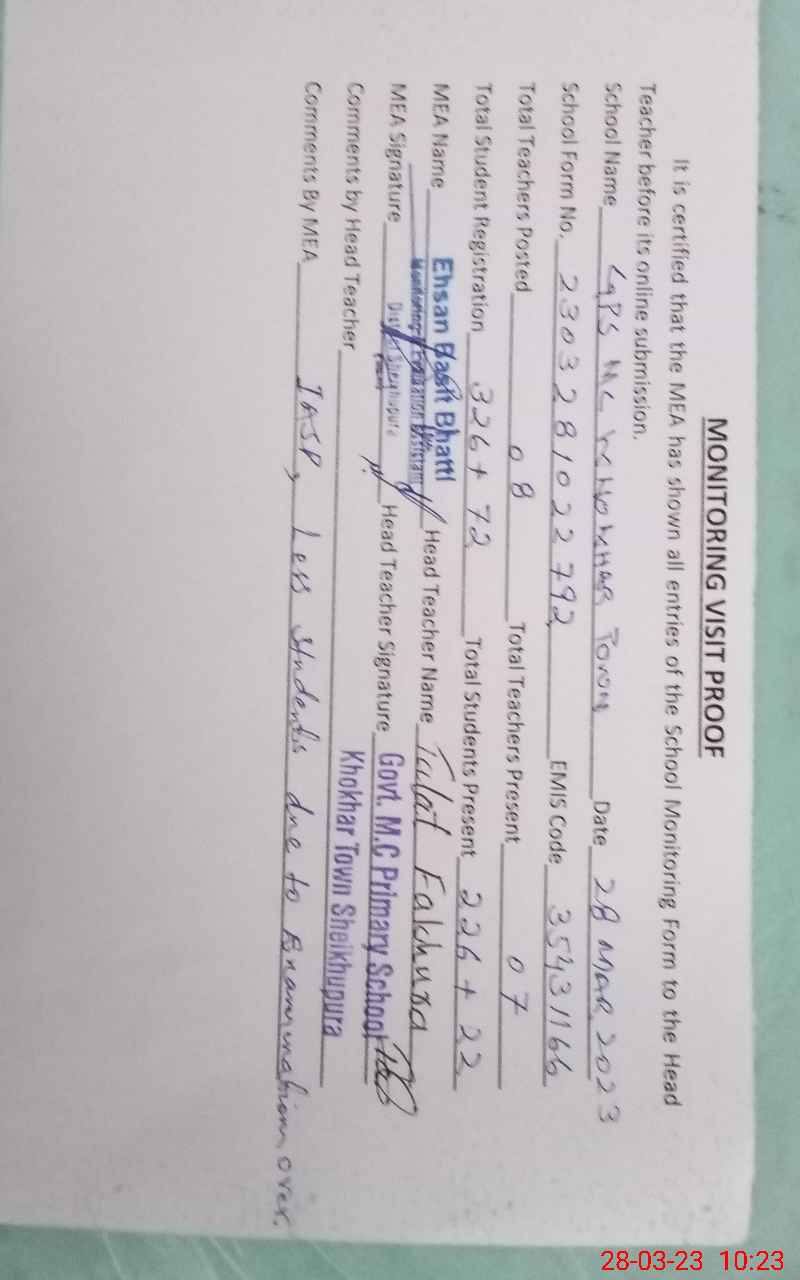 MONITORING VISIT PROOF
It is certified that the MEA has shown all entries of the School Monitoring Form to the Head
Teacher before its online submission.
School Name GPS MC KHOKHAR TOWN Date 28 MAR 2023
School Form No. 230328102279 2 EMIS Code 35431166
Total Teachers Posted 08 Total Teachers Present 07
Total Student Registration 326 + 72 Total Students Present 226 + 22
MEA Name Ehsan Basit Bhatti Head Teacher Name Talat Fakhura
Monitoring Evaluation Assistant
MEA Signature District Sheikhupura Head Teacher Signature Govt. M.C Primary School
Comments by Head Teacher Khokhar Town Sheikhupura
Comments By MEA IASP, Less students due to Examination over.
28-03-23 10:23